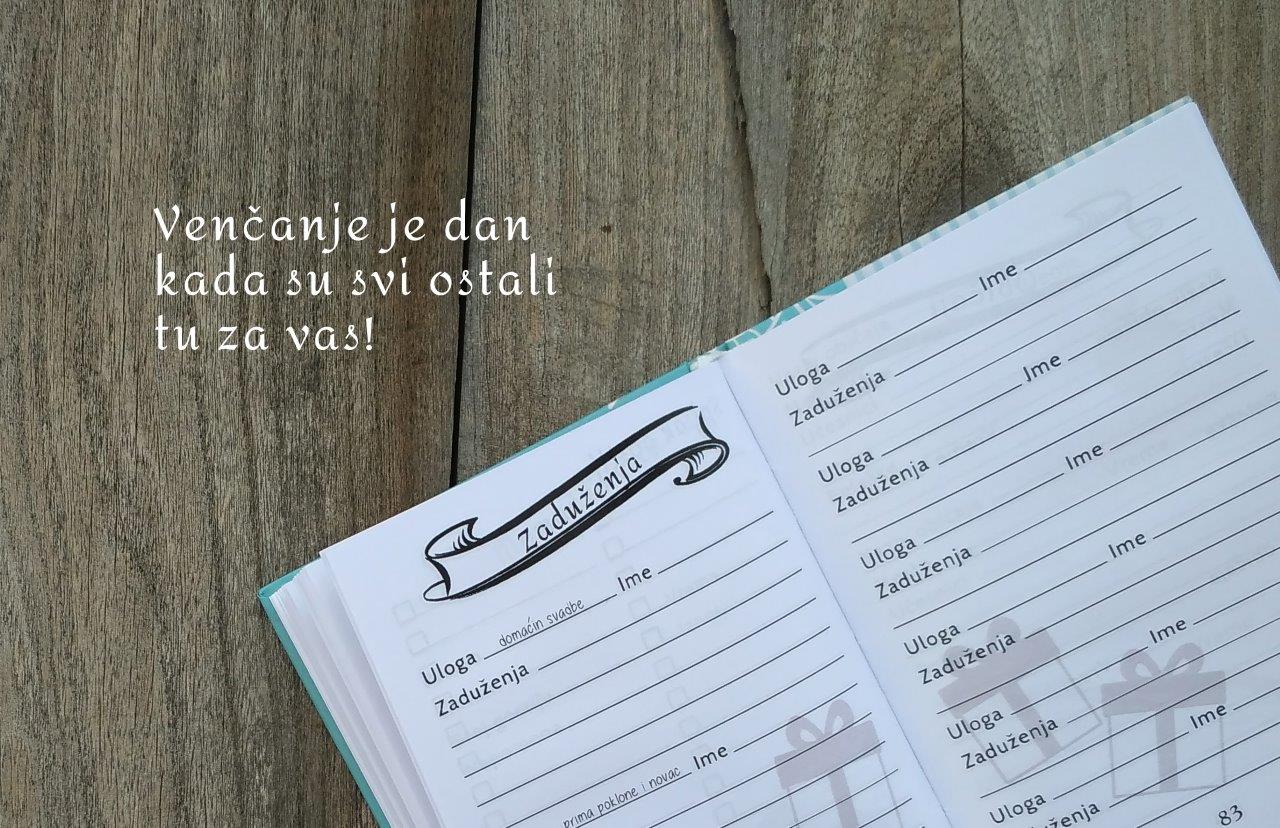 Venčanje je dan
kada su svi ostali
tu za vas!
Zaduženja
Uloga domaćin svadbe Ime
Zaduženja
prima poklone i novac Ime
Uloga Ime
Zaduženja
Uloga Ime
Zaduženja
Uloga Ime
Zaduženja
Uloga Ime
Zaduženja
Uloga Ime
Zaduženja
Uloga Ime
Zaduženja
83